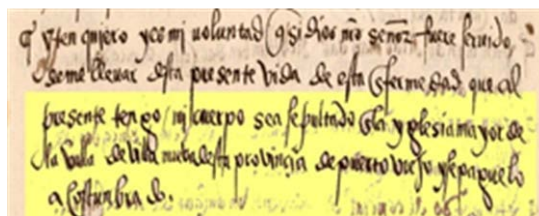 q̃ yten quiero y es mi voluntad q̃ si dios nr̃o señor fuere servido
de me llevar desta presente vida de esta enfermedad que al
presente tengo / mi cuerpo sea sepultado en la yglesia mayor de
la villa de villa nueva desta provincia de puerto viejo y se pague lo
a costunbrado.